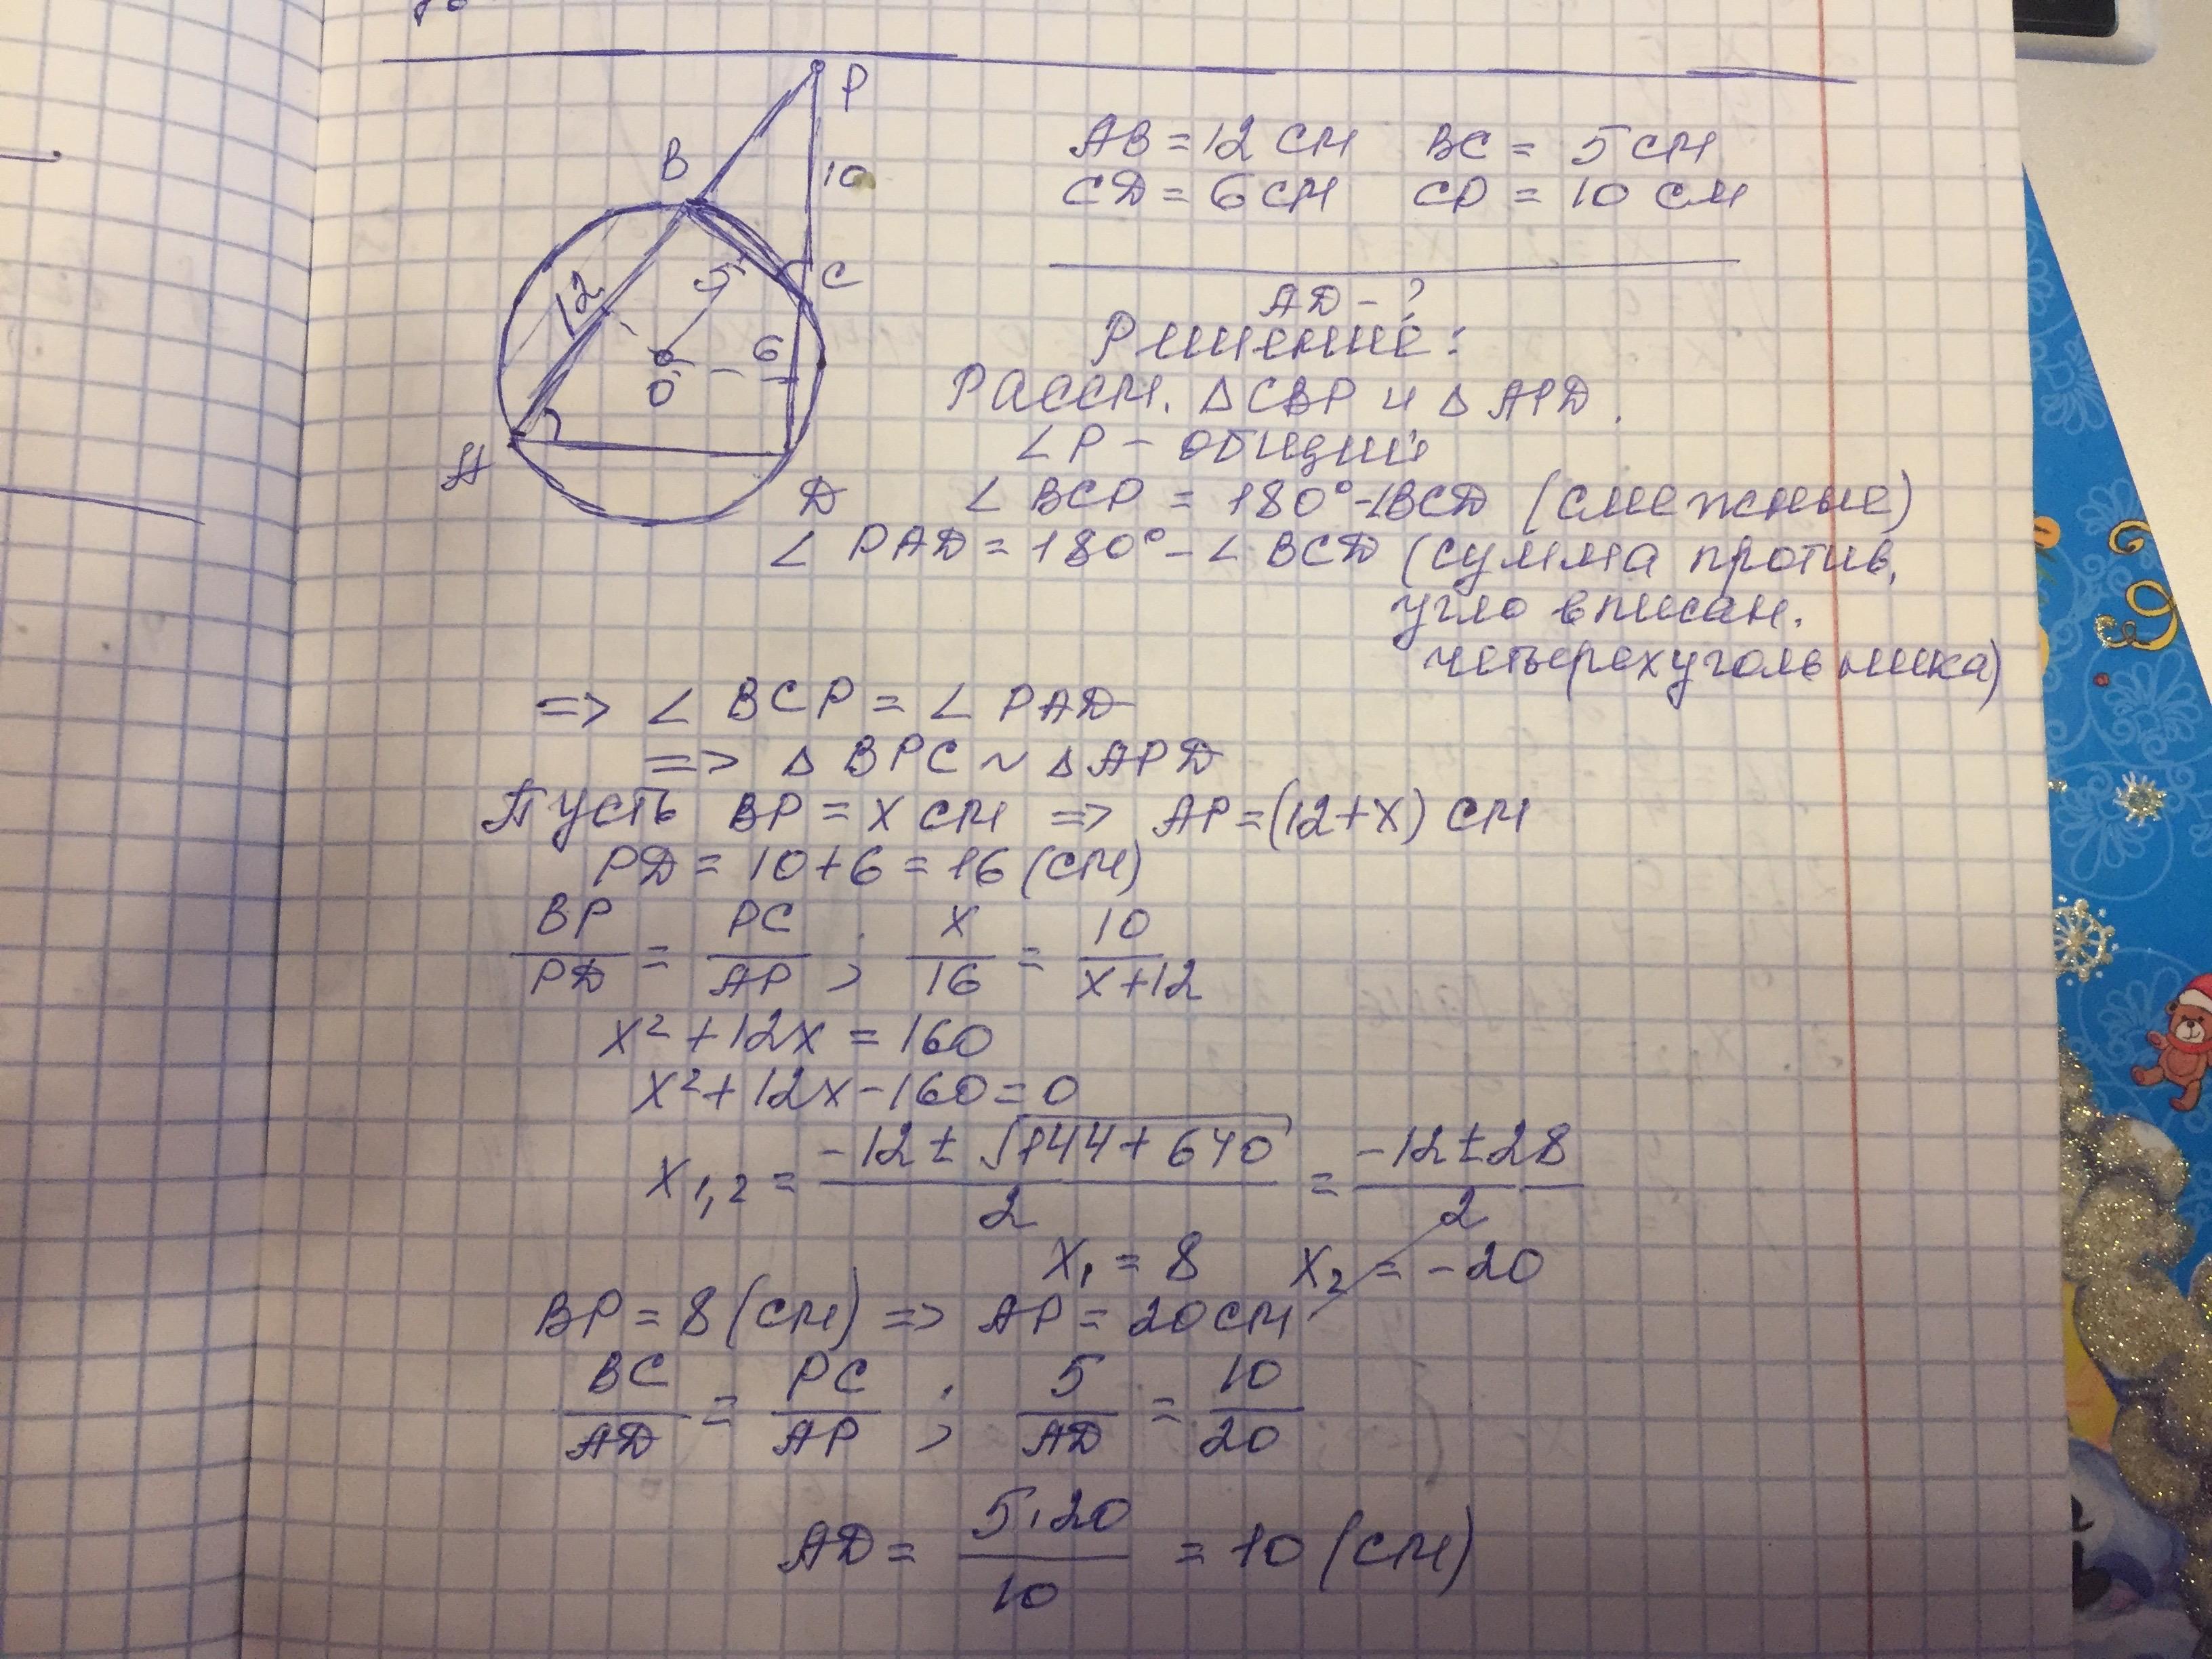 P
B
10
C
12
5
6
O
A
D
AB = 12 см BC = 5 см
CD = 6 см CP = 10 см
AD - ?
Решение:
Рассм. △ CBP и △ APD.
∠ P - общий
∠ BCP = 180° - ∠BCD (смежные)
∠ PAD = 180° - ∠ BCD (сумма против.
угло вписан.
четырехугольника)
=> ∠ BCP = ∠ PAD
=> △ BPC ~ △ APD
Пусть BP = x см => AP = (12+x) см
PD = 10+6 = 16 (см)
BP/PD = PC/AP ; x/16 = 10/x+12
x² + 12x = 160
x² + 12x - 160 = 0
x1,2 = -12 ± √144 + 640/2 = -12 ± 28/2
x1 = 8 x2 = -20
BP = 8 (см) => AP = 20 см
BC/AD = PC/AP ; 5/AD = 10/20
AD = 5·20/10 = 10 (см)